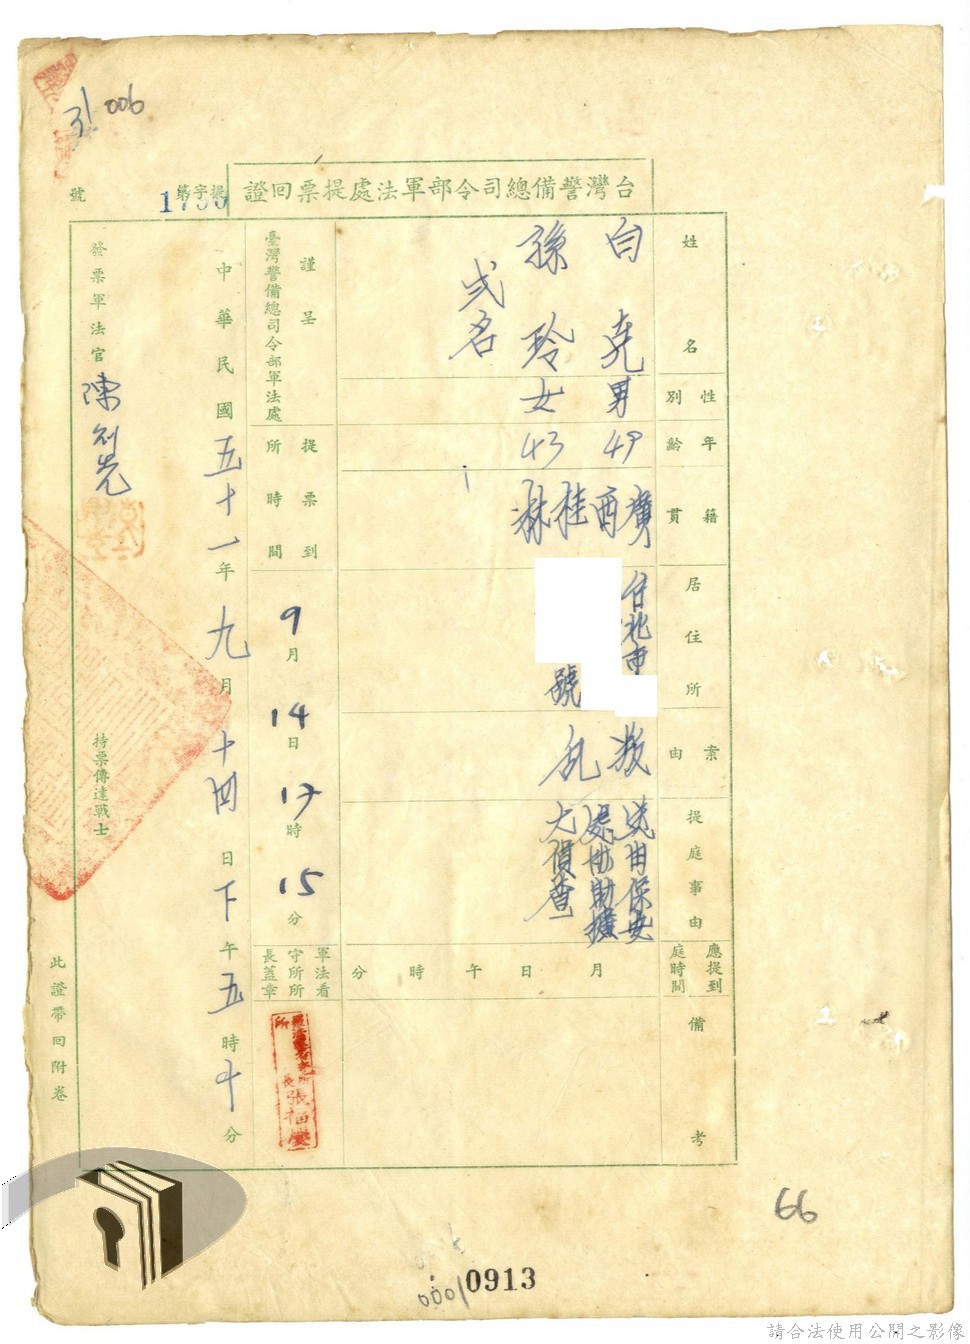 31 006
台灣警備總司令部軍法處提票回證
提字第1750號
姓名
白克
孫玲
弍名
性別
男
女
年齡
49
43
籍貫
廣西
桂林
居住所
台北市
號
案由
叛乱
提庭事由
送由保安
處協助擴
大偵查
應提到庭時間
月 日 午 時 分
備考
謹呈
臺灣警備總司令部軍法處
提票到所時間
9月14日17時15分
軍法看守所所長蓋章
所長張福慶
中華民國五十一年九月十四日下午五時十分
發票軍法官
持票傳達戰士
此證帶回附卷
66
0001
0913
請合法使用公開之影像